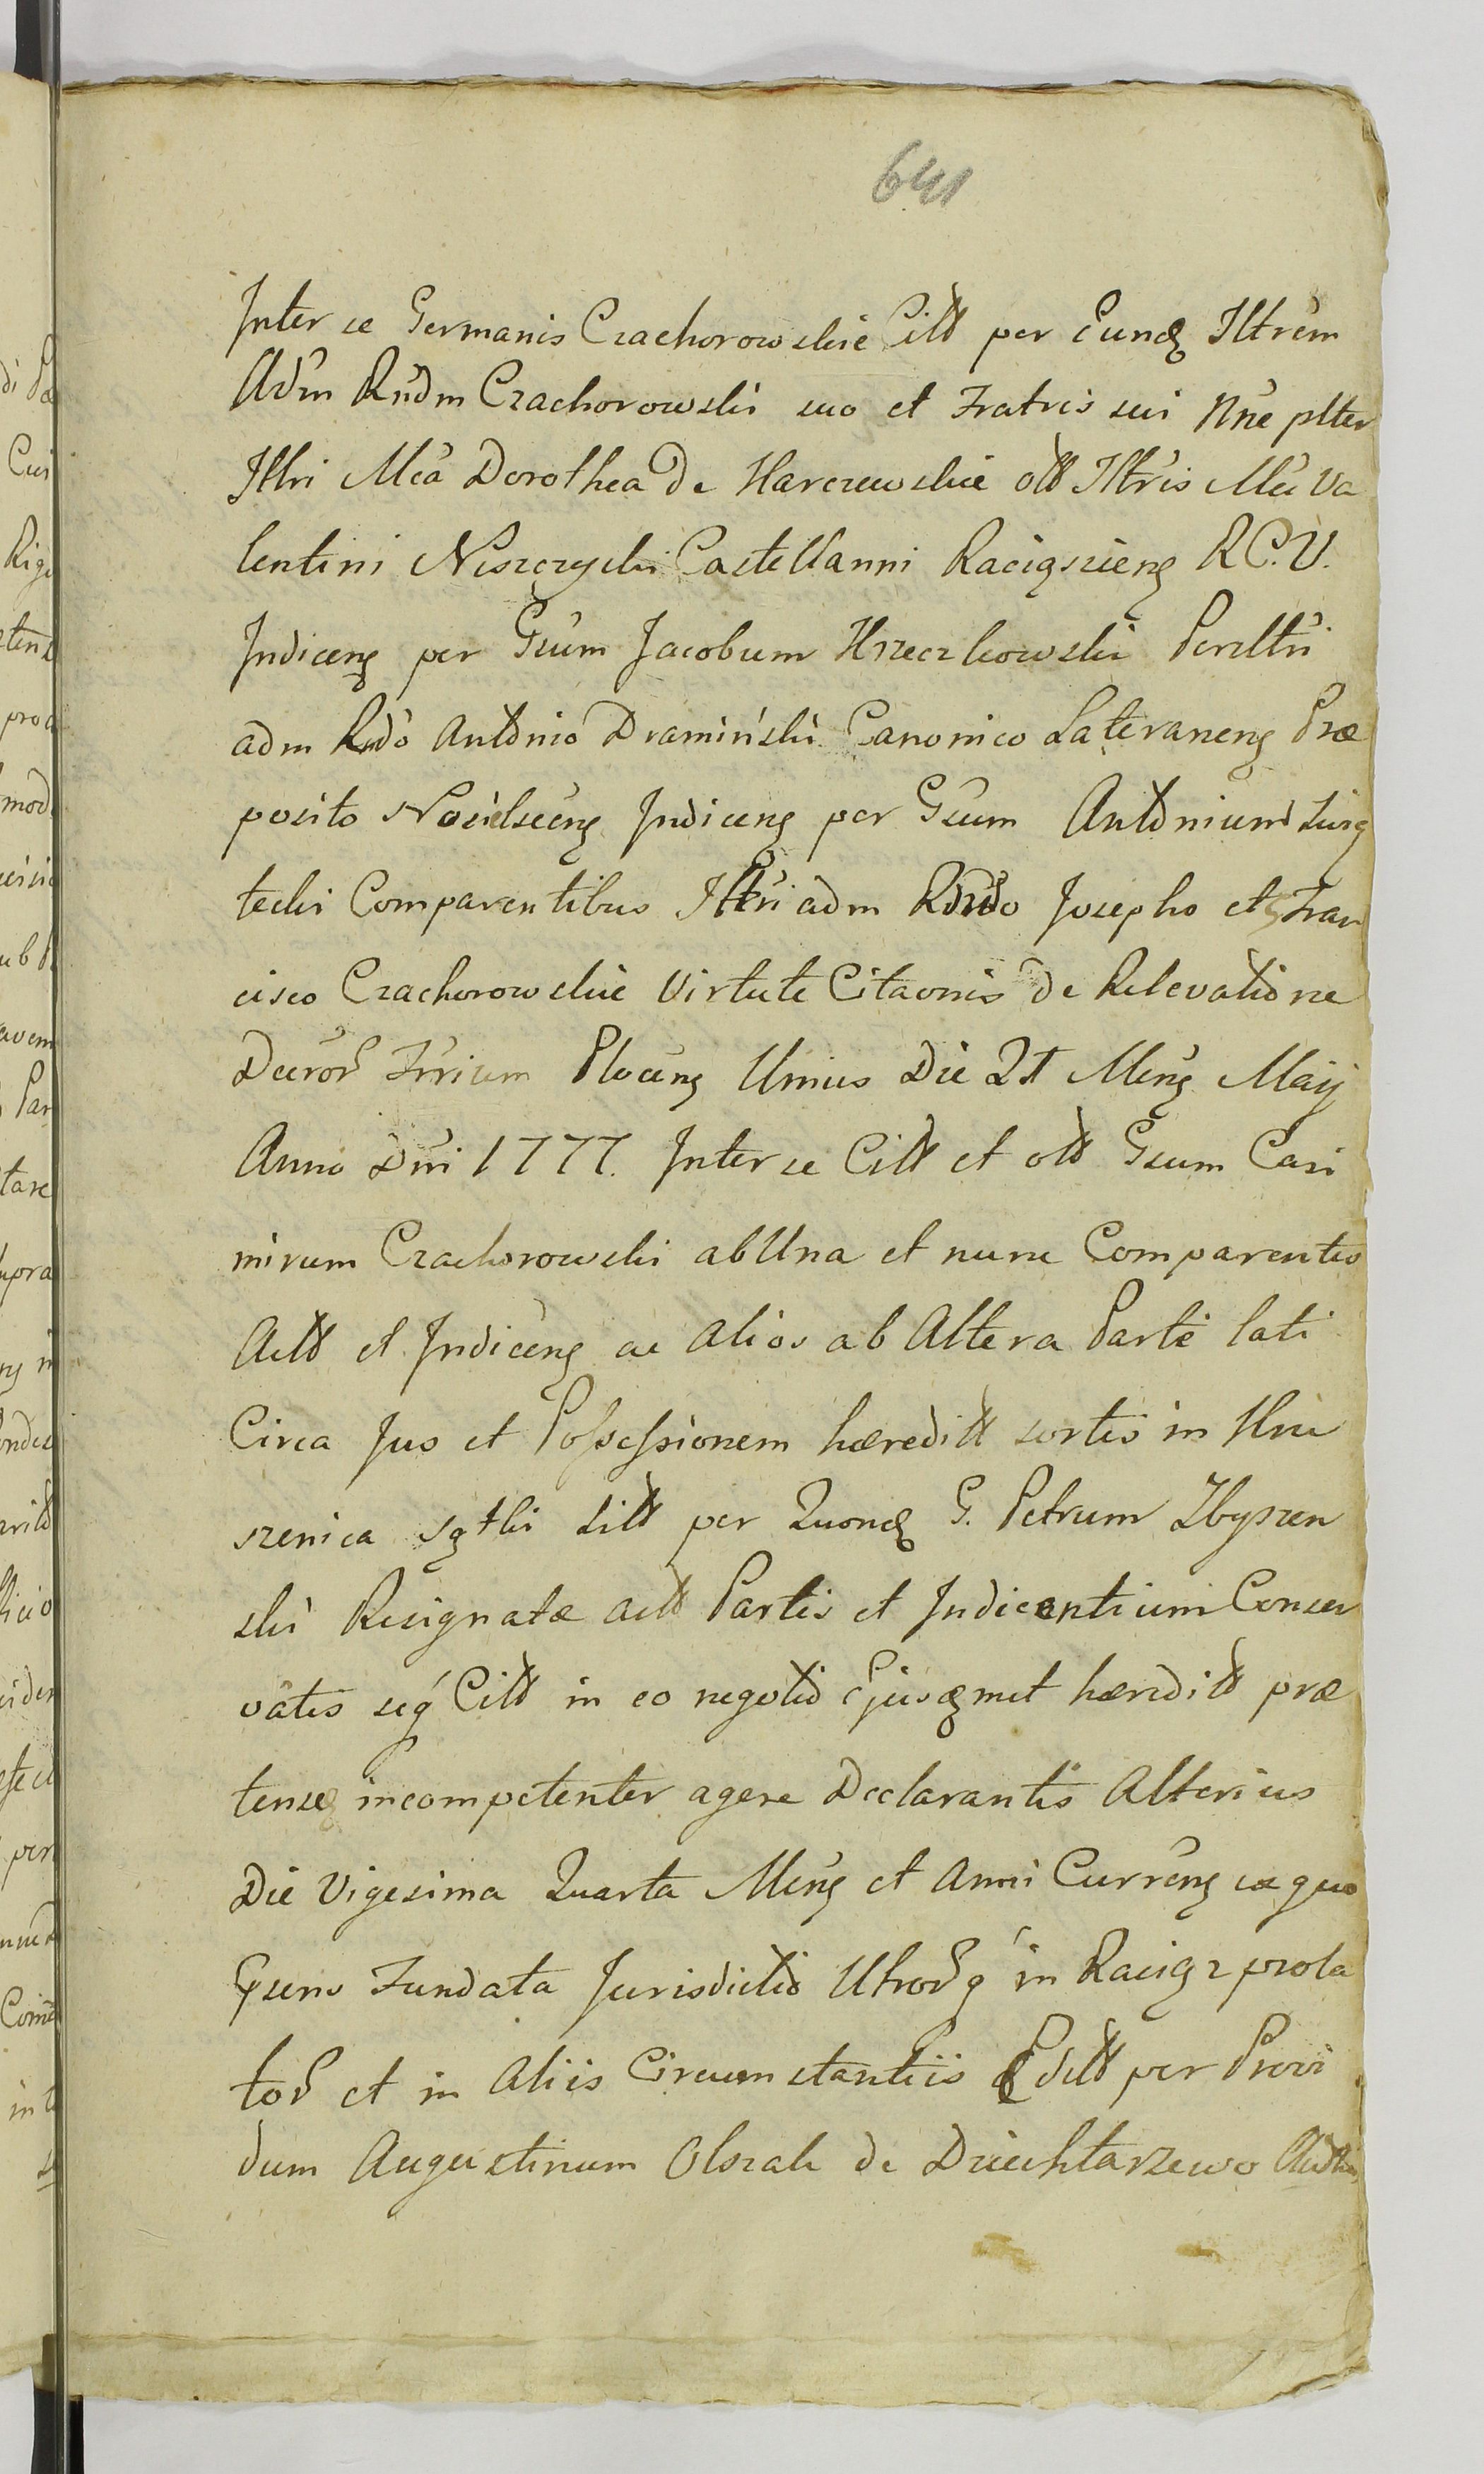 641
Inter se Germanis Czachorowskie Citt per Eundẽ Illtrem
Adm Rndm Czachorowski suo et Fratris sui Nne plter
Illtri Mca Dorothea de Harczewskie ott Illtris Mci Va
lentini Niszczycki Castellanni Raciązieng R C. V.
Indiceng per Gsum Jacobum Krzeczkowski Perlltri
adm Rndo Antonio Dramiński Canonico Lateraneng Præ
posito Nosielsceng Indiceng per Gsum Antonium
tecki Comparentibus Illtri adm Rndo Josepho et Fran
cisco Czachorowskie Virtute Citaonis de Relevatione
Decror Trrium Ploceng Unius Die 21 Meng Maij
Anno Dni 1777. Inter se Citt et ott Gsum Casi
mirum Czachorowski ab Una et nunc Comparentes
Actt et Indiceng ac alios ab Altera Parte lati
Circa Jus et Possessionem hæreditt sortis in
szenica Sitt per Quondẽ G. Petrum Zbyszen
ski Resignatæ actt Partis et Indicentium Conser
vatis seq Citt in eo negotio Ejusdemet hæreditt præ
tensę incompetenter agere Declarantis Alterius
Die Vigesima Quarta Meng et Anni Curreng ex quo
Fundata Jurisdictio Utrorq in Raciąz prola
tor et in Aliis Circumstantiis Editt per Provi
dum Augustinum Olszak de Dziechtarzewo